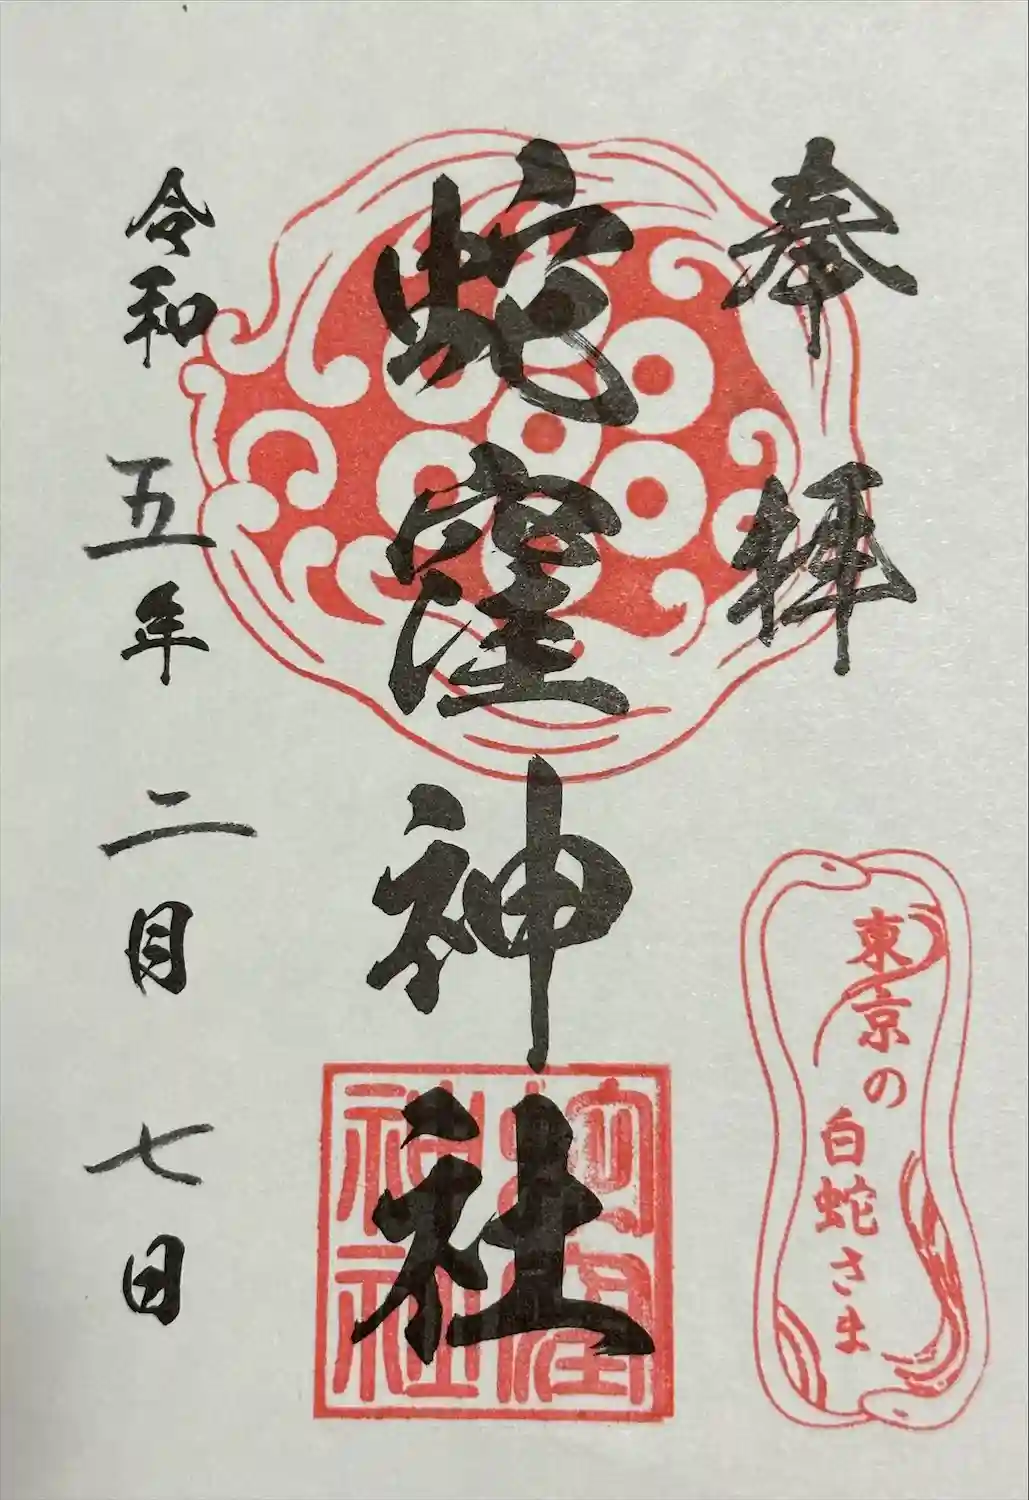 奉拝
東京の
白蛇さま
蛇窪神社
蛇窪
神社
令和五年二月七日